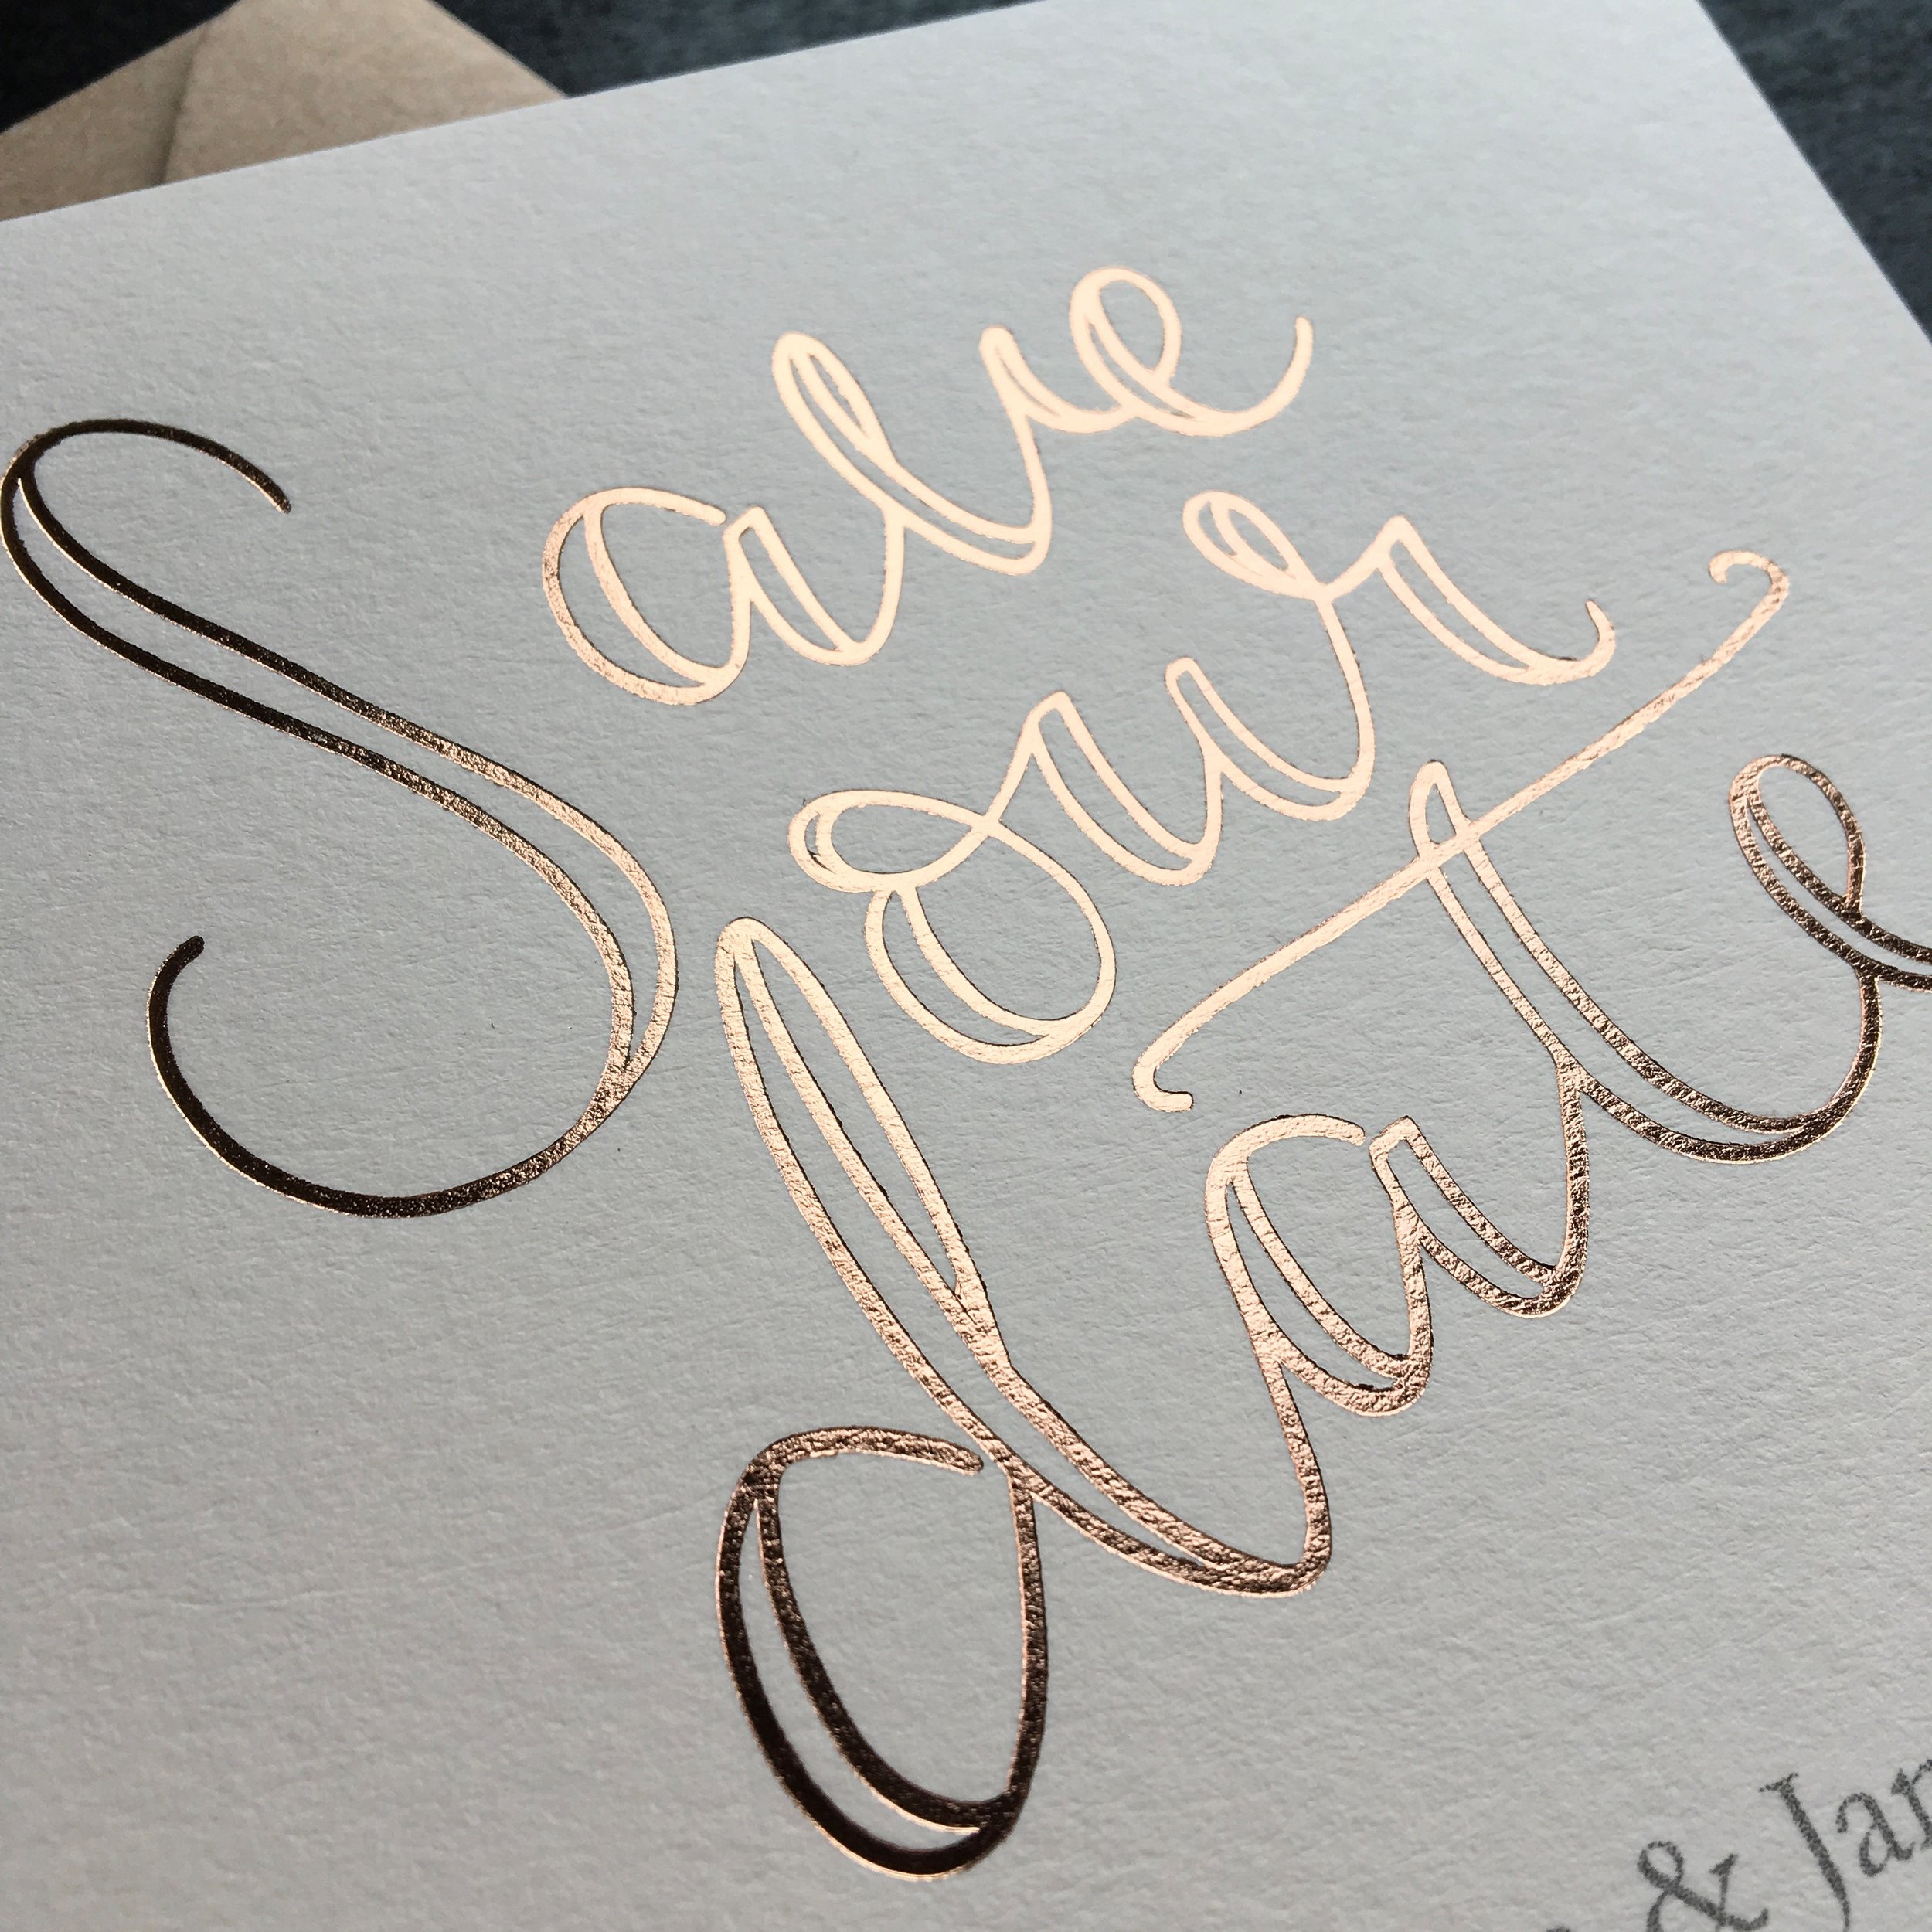 Save
our
date
& Jar